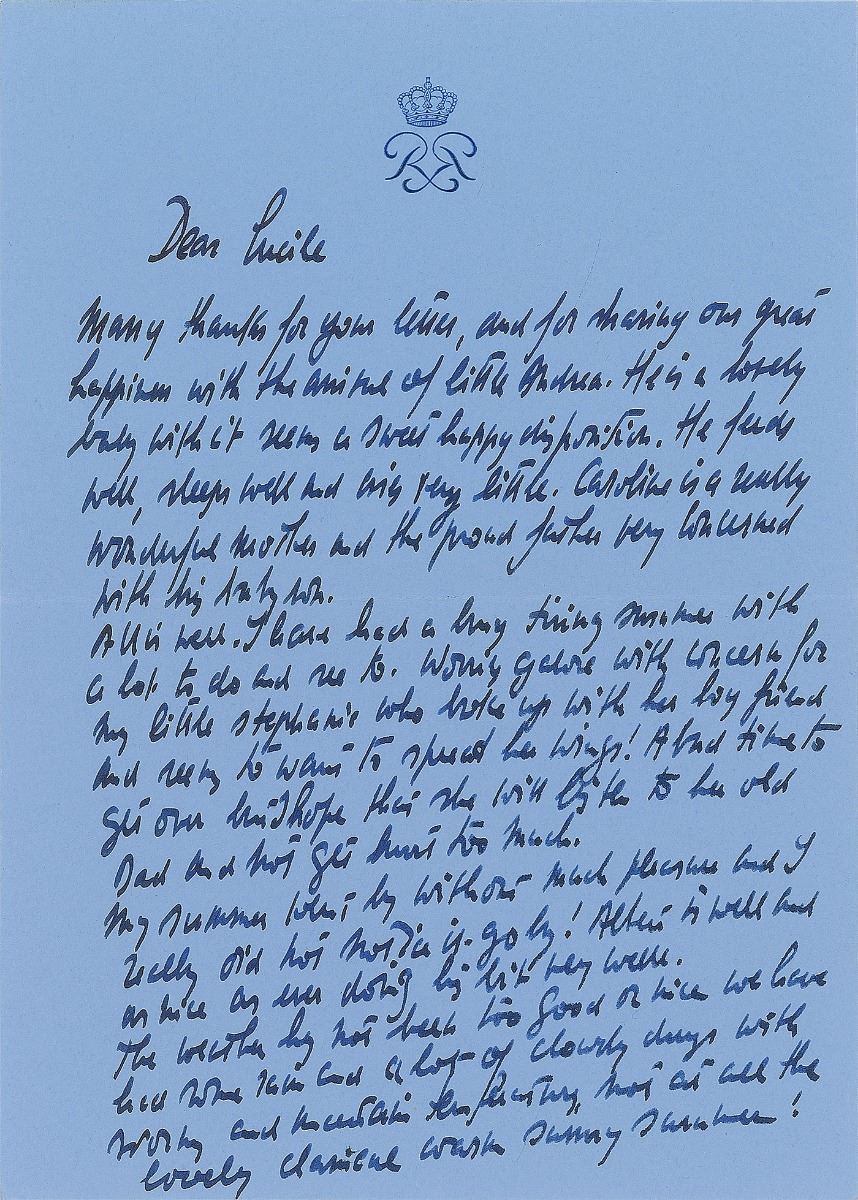 RR
Dear Lucile
Many thanks for your letter, and for sharing our great
happiness with the arrival of little Andrea. He is a lovely
baby with it seems a sweet happy disposition. He feeds
well, sleeps well and cries very little. Caroline is a really
wonderful mother and the proud father very concerned
with his baby son.
All is well. I have had a busy tiring summer with
a lot to do and see to. Worry galore with concern for
my little stephanie who broke up with her boy friend
and seems to want to spread her wings! A bad time to
get over but I hope that she will listen to her old
Dad and not get hurt too much.
My summer went by without much pleasure and I
really did not notice it go by! Albert is well and
as nice as ever doing his bit very well.
The weather has not been too good or nice we have
had some rain and a lot of cloudy days with
and uncertain temperatures, not at all the
lovely classical warm sunny summer!